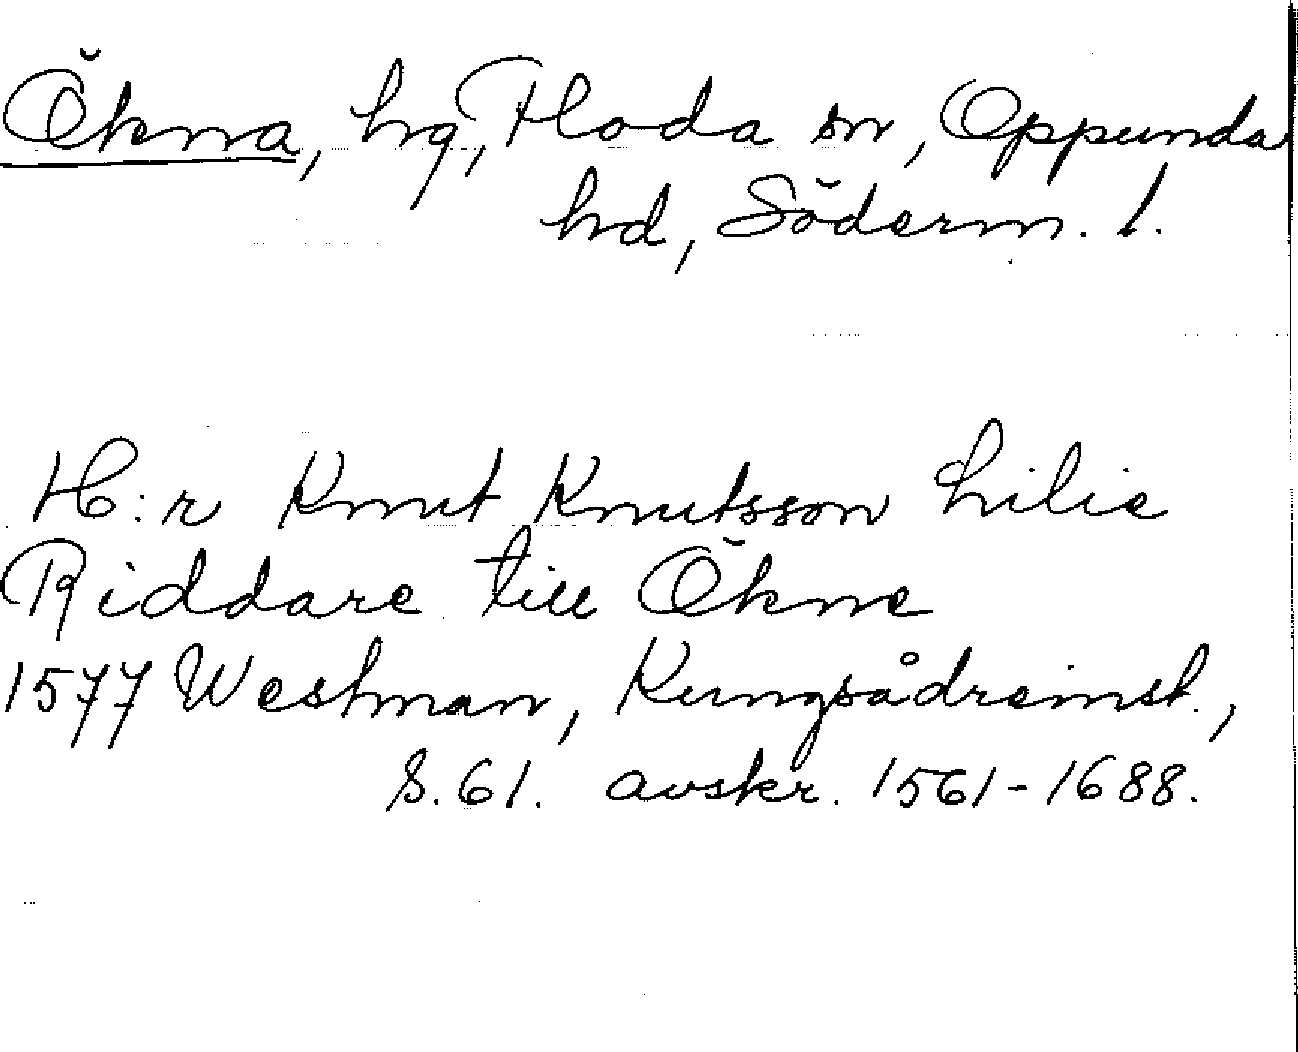 Ökna, hg, Floda sn, Oppunda
hd, Söderm. l.
H:r Knut Knutsson Lilie
Riddare till Ökne
1577 Westman, Kungsådreinst.,
S. 61. avskr. 1561-1688.